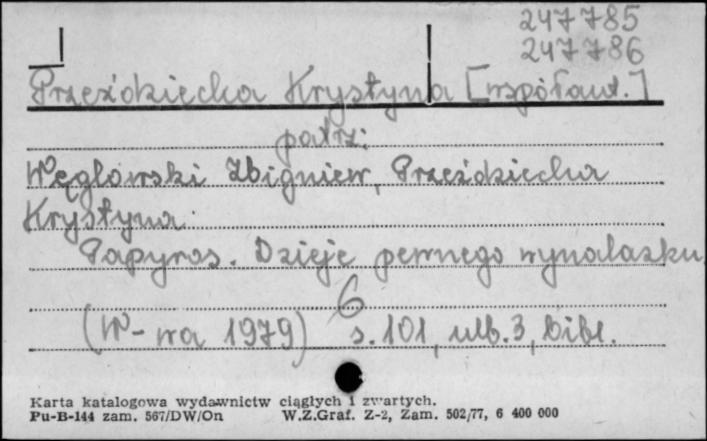 247785
247786
Przeździecka Krystyna [współaut.]
patrz:
Węglowski Zbigniew, Przeździecka
Krystyna
Papyros. Dzieje pewnego wynalazku
6
(W-wa 1979) s. 101, nlb. 3, bibl.
Karta katalogowa wydawnictw ciągłych i zwartych.
Pu-B-144 zam. 567/DW/On W.Z.Graf. Z-2, Zam. 502/77, 6 400 000